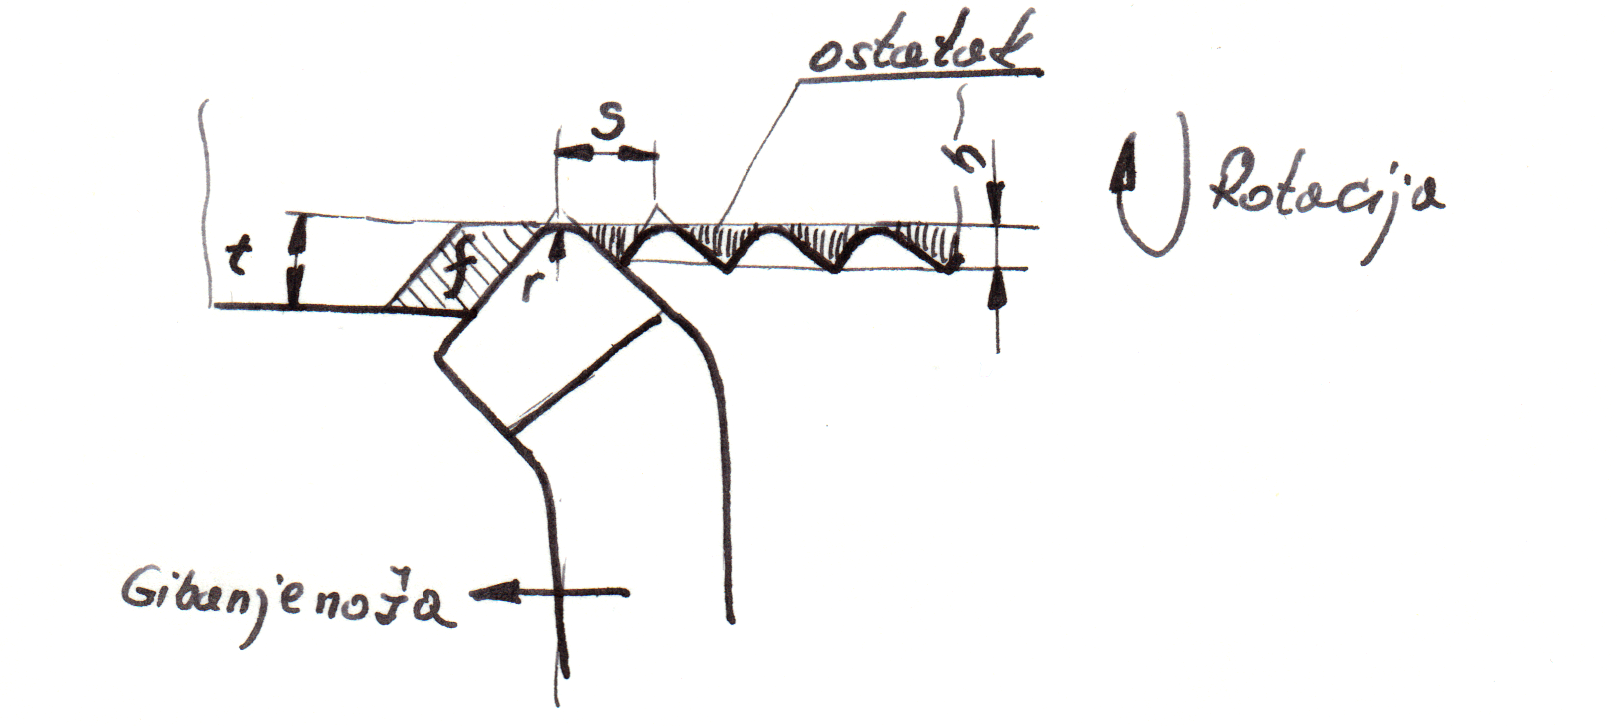 ostatak
S
h
Rotacija
t
f
r
Gibanje noža